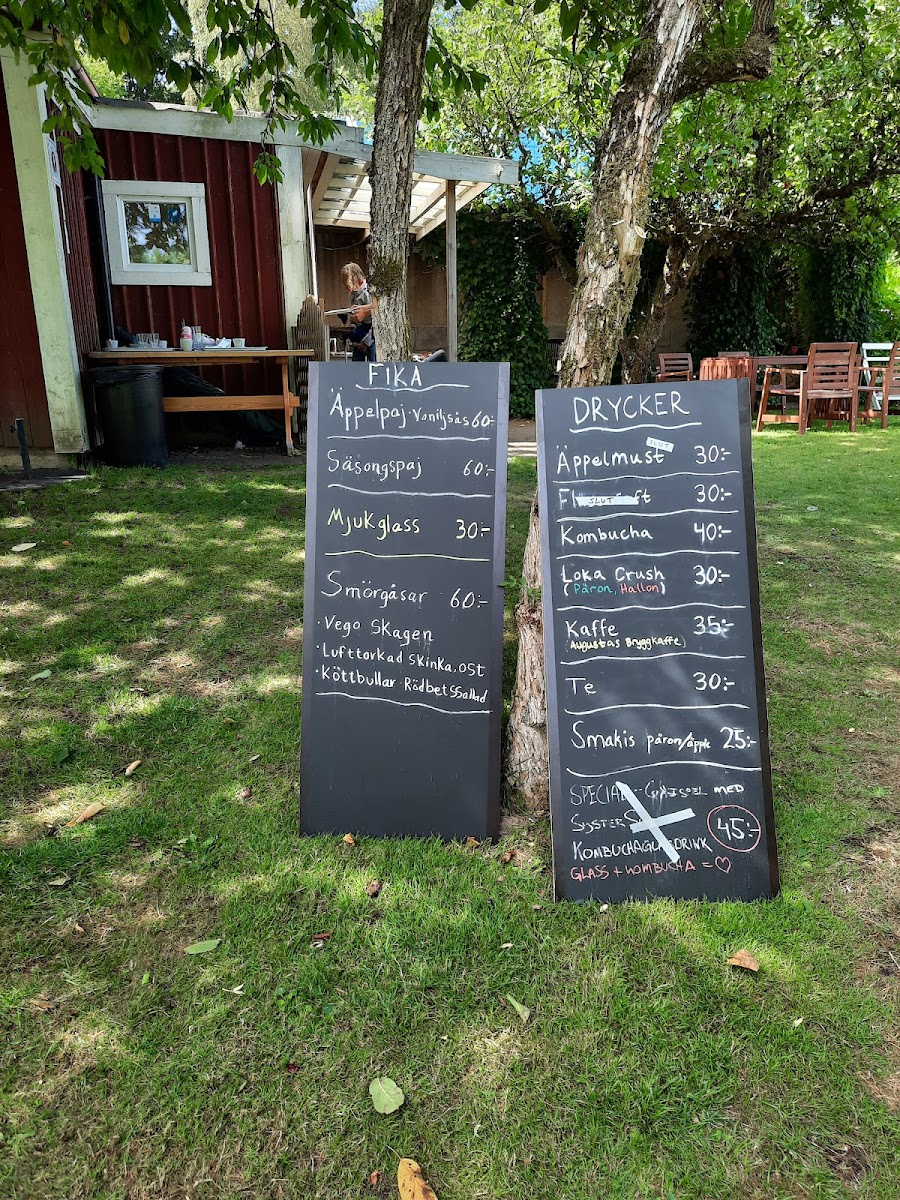 FIKA
Äppelpaj - Vaniljsås 60:-
Säsongspaj 60:-
Mjukglass 30:-
Smörgåsar 60:-
· Vego Skagen
· Lufttorkad Skinka, ost
· Köttbullar - Rödbetssallad
DRYCKER
Äppelmust SLUT 30:-
SLUT 30:-
Kombucha 40:-
Loka Crush 30:-
(Päron, Hallon)
Kaffe 35:-
(Augustas Bryggkaffe)
Te 30:-
Smakis päron/äpple 25:-
SPECIAL MED
45:-
GLASS + KOMBUCHA = ♡